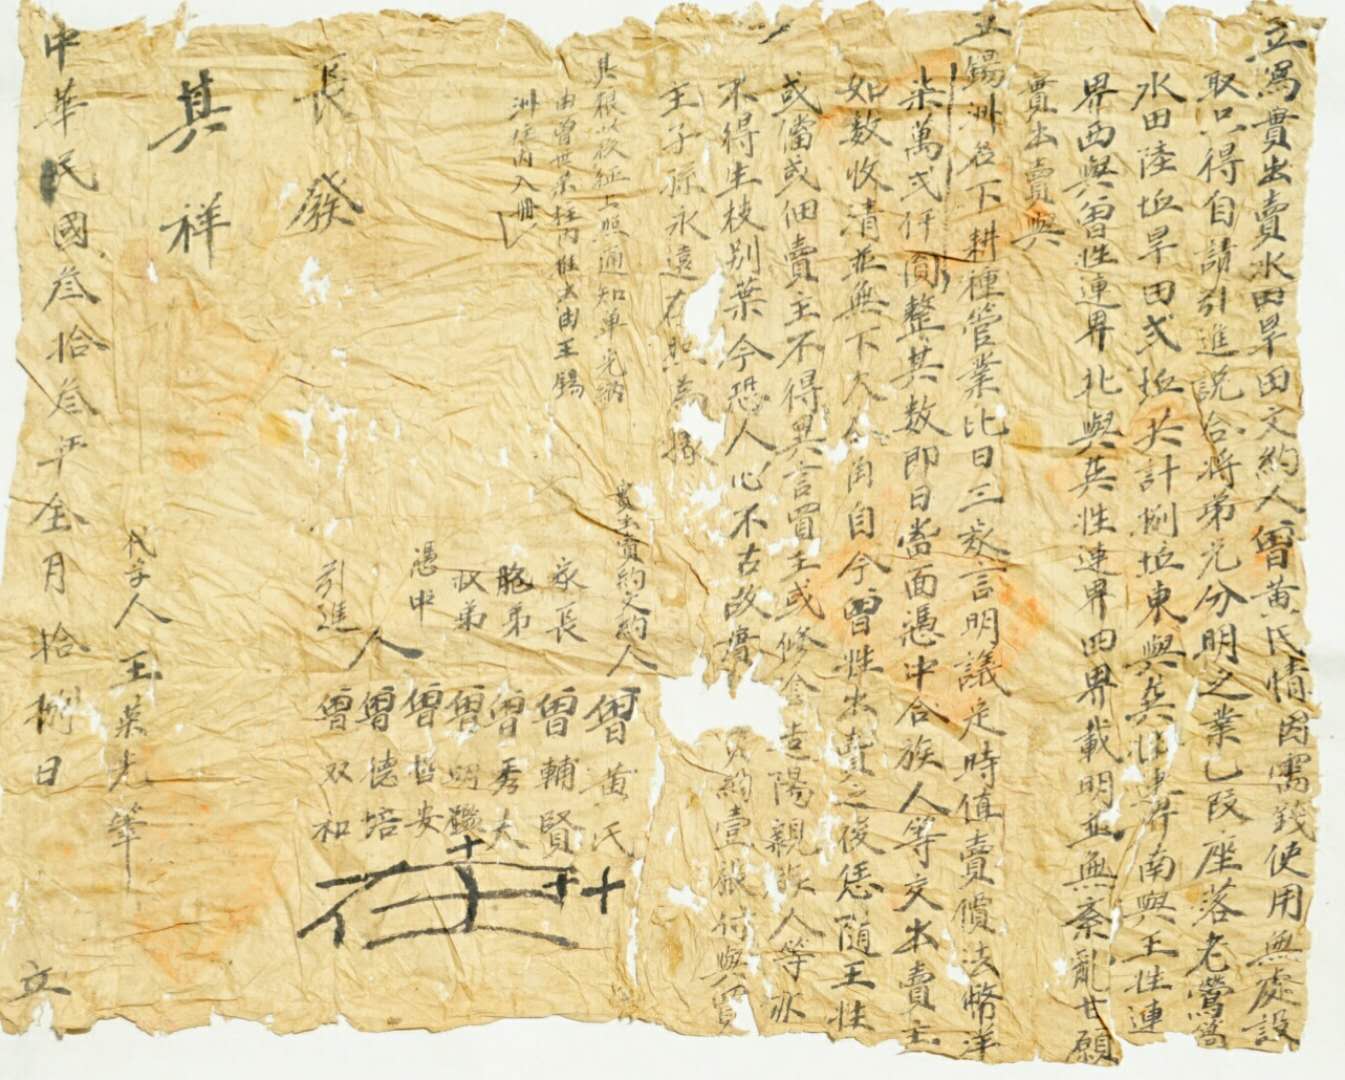 立寫實出賣水田旱田文約人曾黃氏情因需錢使用無處設
取只得自請引進説合將弟兄分明之業乙段座落老鶯
水田陸坵旱田弍坵共計捌坵東與吳性連界南與王性連
界西與曾性連界北與吳性連界四界載明並無紊亂甘願
實出賣與
王錫洲名下耕種管業比日三家言明議定時值賣價法幣洋
柒萬弍仟圓整其数即日當面憑中合族人等交出賣主
如数收清並無下欠角自今曾性出賣之後恁隨王性
或當或佃賣主不得異言買主或修陰造陽親族人等亦
不得生枝别葉今恐人心不古故書賣約壹紙付與買
主子孫永遠存照為據
其粮以改征上照通知单完納
由曾世榮柱内推出由王錫
洲柱内入册
實出賣約文約人 曾黃氏
家長 曾輔賢
胞弟 曾秀夫
叔弟 曾明鑑
憑中 曾哲安
人 曾德培
引進 曾双和
長發
其祥
代字人 王葉光筆
中華民國叁拾叁年全月拾捌日 立